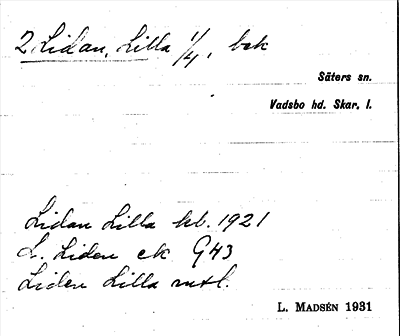 2 Lidan, Lilla 1/4, bek
Säters sn.
Vadsbo hd. Skar. l.
Lidan Lilla kb. 1921
L. Liden ek G43
Liden Lilla mtl.
L. MADSÉN 1931